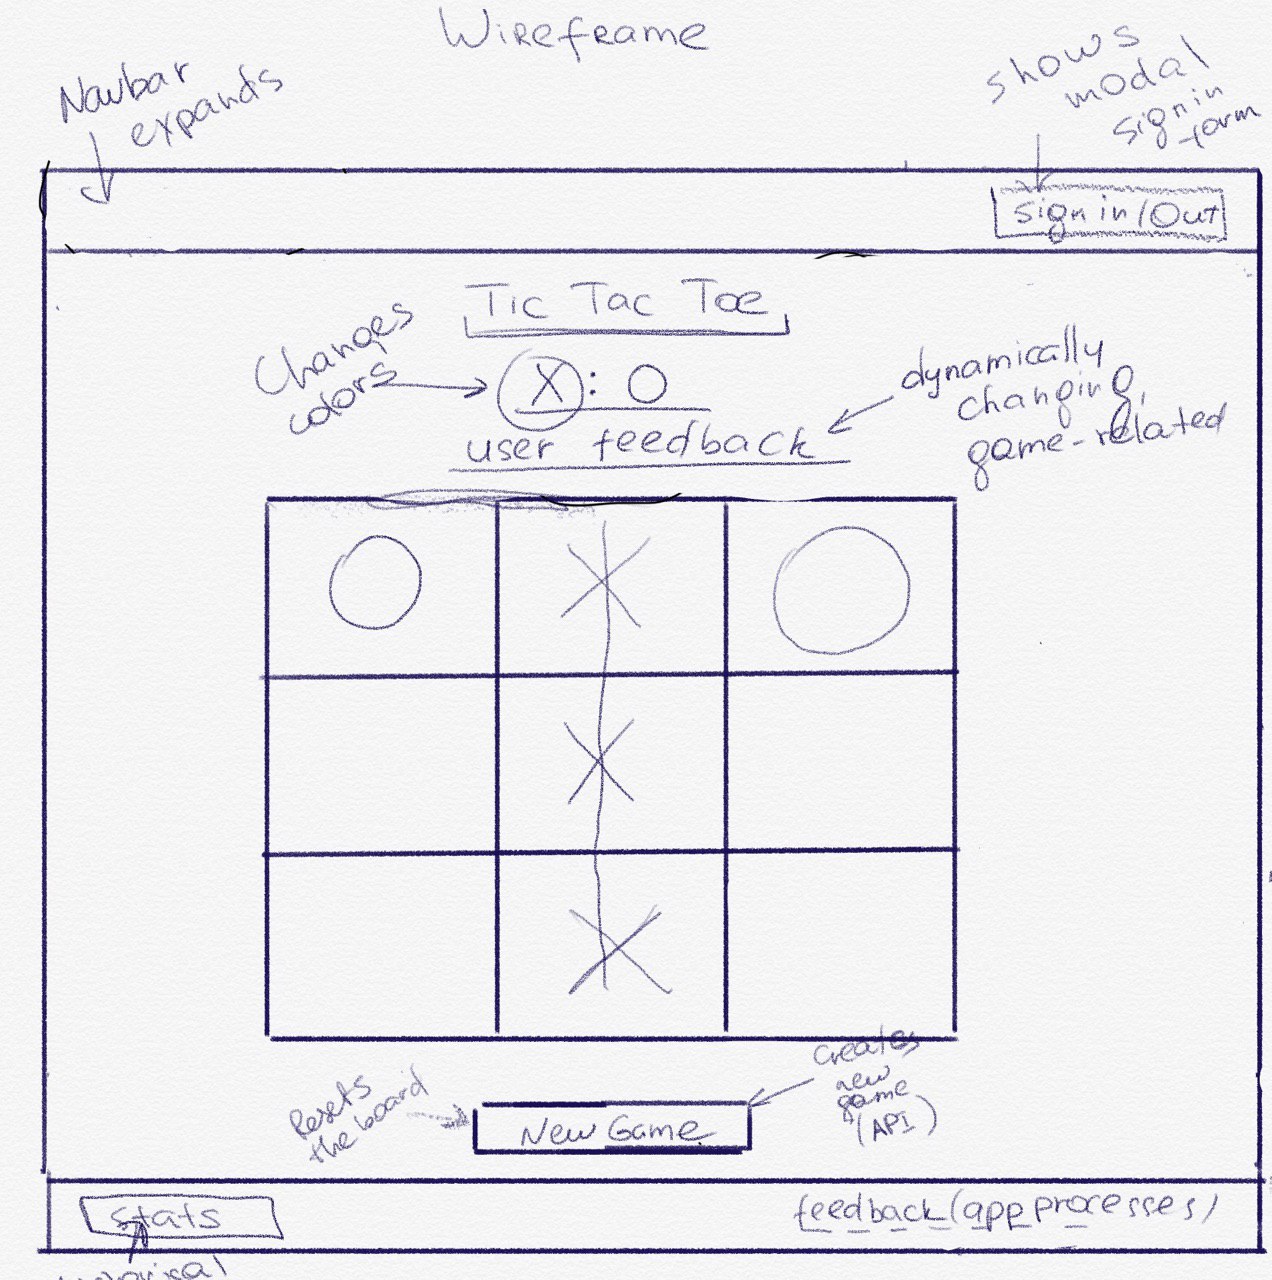 Wireframe
Navbar
expands
shows
modal
sign in
form
Sign in/Out
Tic Tac Toe
Changes
colors
X : O
user feedback
dynamically
changing,
game-related
O X O
X
X
Resets
the board
New Game
creates
new
game
(API)
stats
feedback (app processes)